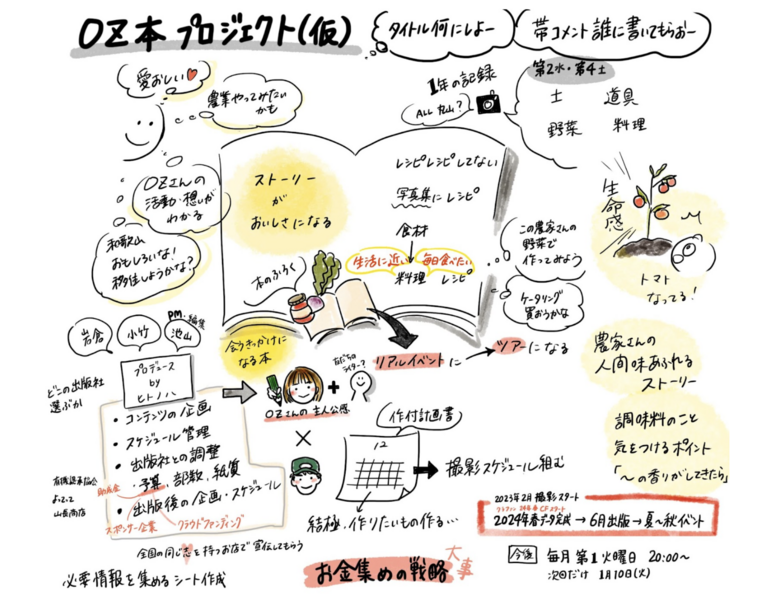 OZ本プロジェクト(仮)
タイトル何にしよー
帯コメント誰に書いてもらおー
愛おしい
農業やってみたい
かも
1年の記録
ALL 丸山?
第2水・第4土
土 道具
野菜 料理
OZさんの
活動・想いが
わかる
和歌山
おもしろいな!
移住しようかな?
ストーリー
が
おいしさになる
レシピレシピしてない
写真集にレシピ
食材
生活に近い 毎日食べたい
料理 レシピ
本のふろく
この農家さんの
野菜で
作ってみよう
ケータリング
買おうかな
生命感
トマト
なってる!
岩倉
小竹
PM・編集
池山
プロデュース
by
ヒトノハ
どこの出版社
選ぶか
会うきっかけに
なる本
リアルイベントに
ツアーになる
OZさんの主人公感
農家さんの
人間味あふれる
ストーリー
調味料のこと
気をつけるポイント
「〜の香りがしてきたら」
・コンテンツの企画
・スケジュール管理
・出版社との調整
・予算、部数、紙質
助成金
・出版後の企画・スケジュール
スポンサー企業
クラウドファンディング
山長商店
作付計画書
12
撮影スケジュール組む
結極、作りたいもの作る…
2023年2月 撮影スタート
2024年春データ完成→6月出版→夏〜秋イベント
全国の同じ志を持つお店で宣伝してもらう
必要情報を集めるシート作成
お金集めの戦略
大事
今後 毎月第1火曜日 20:00〜
次回だけ 1月10日(火)